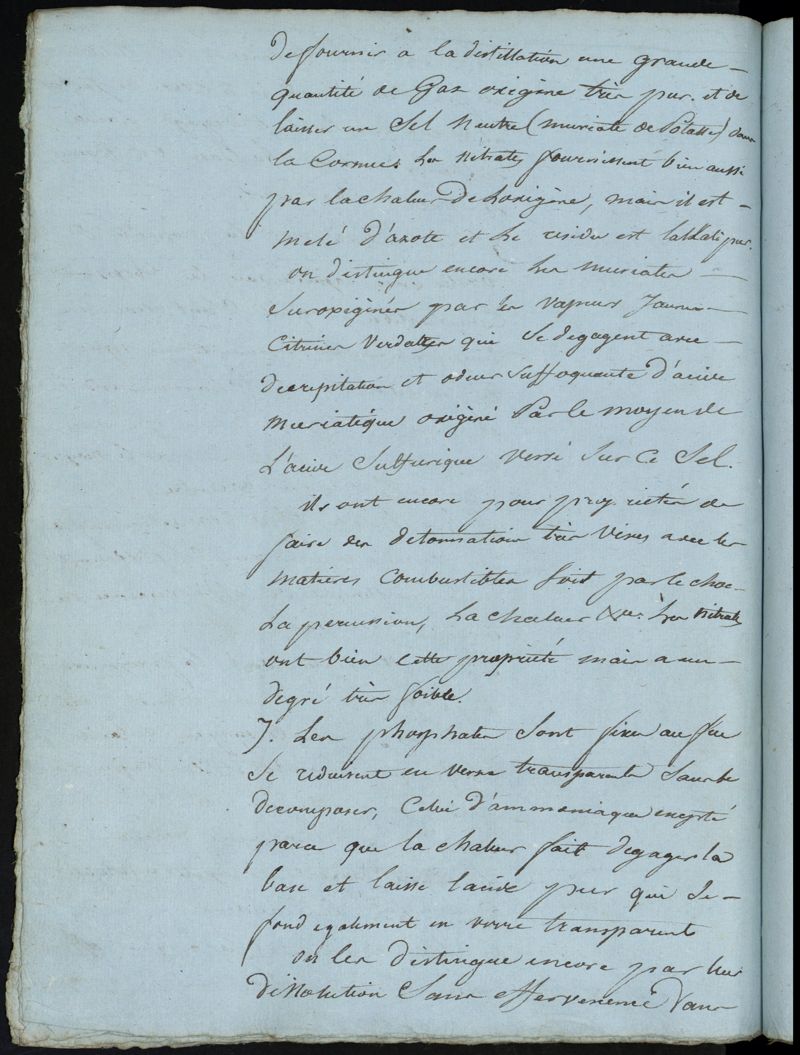 de fournir a la distillation une grande
quantité de Gaz oxigène très pur. et de
laisser un Sel Neutre (muriate de Potasse) dans
la Cornue. Les nitrates fournissent bien aussi
par la chaleur De Loxigène, mais il est
melé d'azote et le residu est lalkali pur.
on distingue encore les muriates
Suroxiginés par les vapeurs Jaunes
Citrines verdatres qui se degagent avec
decrepitation et odeur suffoquante d'acide
muriatique oxigéné Par le moyen de
L'acide Sulfurique versé sur Ce Sel.
ils ont encore pour proprietés de
faire des detonnations très vives avec les
matières Combustibles soit par le choc
La percussion, La chaleur &c. Les nitrates
ont bien cette propriété mais a un
degré très foible.
7. Les phosphates sont fixes au feu
Se reduisent en verre transparents sans se
decomposer, Celui d'ammoniaque excepté
parce que la chaleur fait degager la
base et laisse lacide pur qui se
fond egalement en verre transparent
on les distingue encore par leur
dissolution Sans effervescence Dans